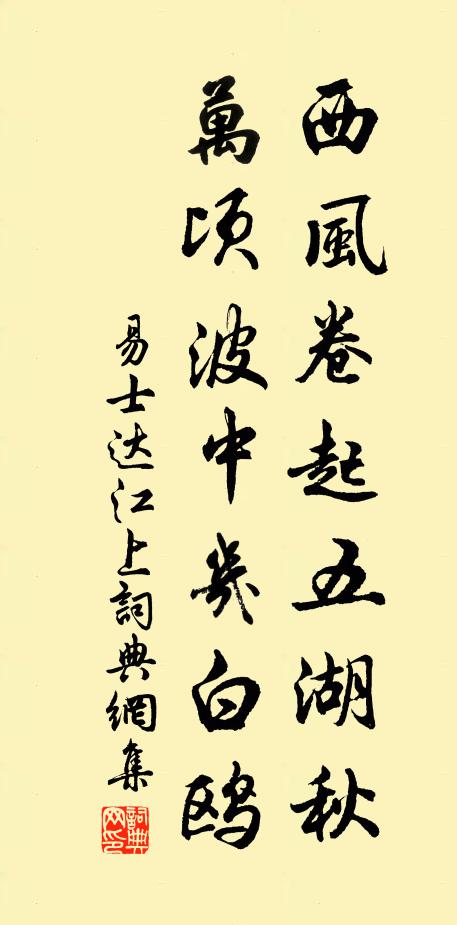 西風卷起五湖秋
萬頃波中幾白鷗
易士达江上詞典網集
詞典网印